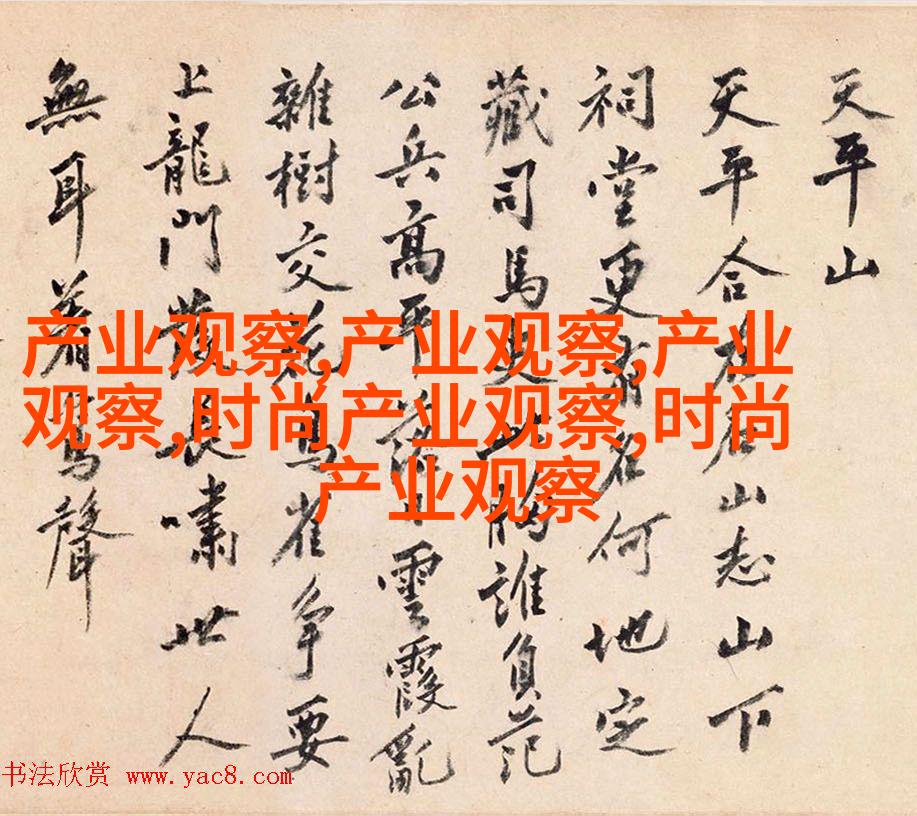 天平山
天平合在名山志山下
祠堂更有名何地定
藏司馬史此胸誰負范
公兵高平落日雲霞亂
雜樹交花鳥雀爭要
上龍門發長嘯世人
無耳著鸞聲
产业观察,产业观察,产业
观察,时尚产业观察,时尚
产业观察
书法欣赏 www.yac8.com